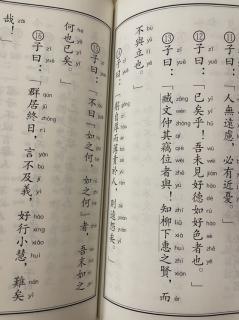 ⑪子曰：「人無遠慮，必有近憂。」
⑫子曰：「已矣乎！吾未見好德如好色者也。」
⑬子曰：「臧文仲其竊位者與！知柳下惠之賢，而
不與立也。」
⑭子曰：「躬自厚而薄責於人，則遠怨矣。」
⑮子曰：「不曰『如之何，如之何』者，吾末如之
何也已矣。」
⑯子曰：「群居終日，言不及義，好行小慧，難矣
哉！」